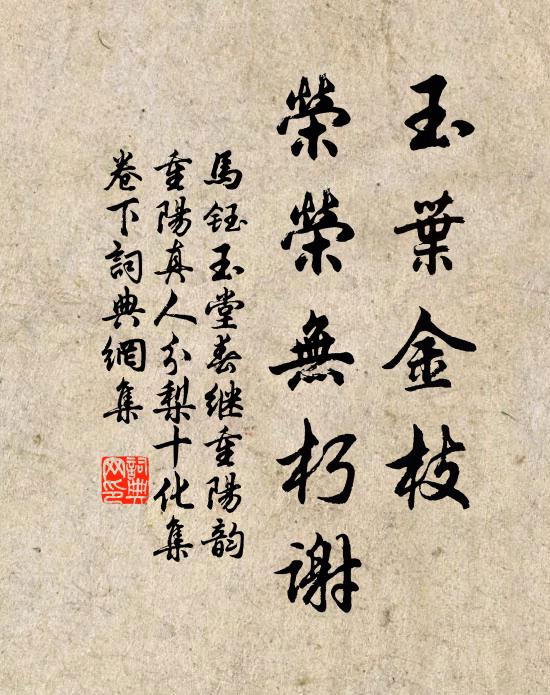 玉葉金枝
榮榮無朽謝
馬鈺玉堂春继重陽韵
重陽真人分梨十化集
卷下詞典網集
詞典
网印